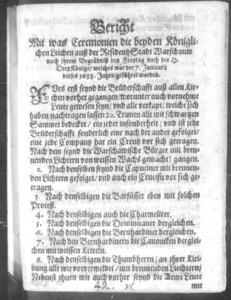 Bericht
Mit was Ceremonien die beyden Königli-
chen Leichen auß der Residentz Stadt Warschaw
nach ihrem Begräbnüß den Freytag nach der H.
Drey Könige/ welches war der 7. Januarij
dieses 1633. Jahrs/ geführet worden.
Es erst seynd die Brüderschafft auß allen Kir-
chen vorher gegangen/ worunter auch vornehme
Leute gewesen seynd/ und alle verkapt/ welche sich
haben nachtragen lassen 20. Trumen alle mit schwartzen
Sammet bedecket/ ein jeder insonderheit/ und ist jede
Brüderschafft sonderlich eine nach der andern gefolget/
eine jede Compani hat ein Creutz vorher getragen.
Nach den seynd die Warschawische Bürger mit bren-
nenden Lichtern von weissen Wachs gemacht/ gangen.
2. Nach denselben seynd die Capuciner mit brennen-
den Lichtern gefolget/ und auch ein Crucifix vor sich ge-
tragen.
3. Nach denselbigen die Barfüsser eben mit solchen
Process.
4. Nach denselbigen auch die Charmeliter.
5. Nach denselbigen die Dominicaner dergleichen.
6. Nach denselbigen die Bernhardiner dergleichen.
7. Nach den Bernhardinern die Canonicken derglei-
chen mit weissen Kertzen.
8. Nach denselbigen die Thumbherrn/ an ihrer Klei-
dung alle wie vor vermeldet/ mit brennenden Liechtern/
Nebenst ihnen wie auch vorher seynd die Arme Leute
42. )( mit